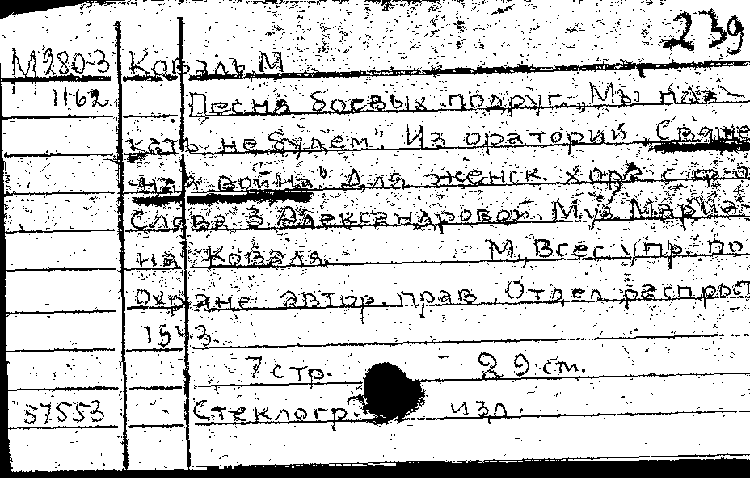 239
М280-3 Коваль, М
1162 Песня боевых подруг „Мы пла-
кать не будем". Из оратории „Священ-
ная война" Для женск. хора с ф-о
Слова З. Александровой. Муз. Мариа-
на Коваля. М., Всес. упр. по
охране автор. прав. Отдел распрост
1943.
7 стр. 29 см.
57553 Стеклогр. изд.